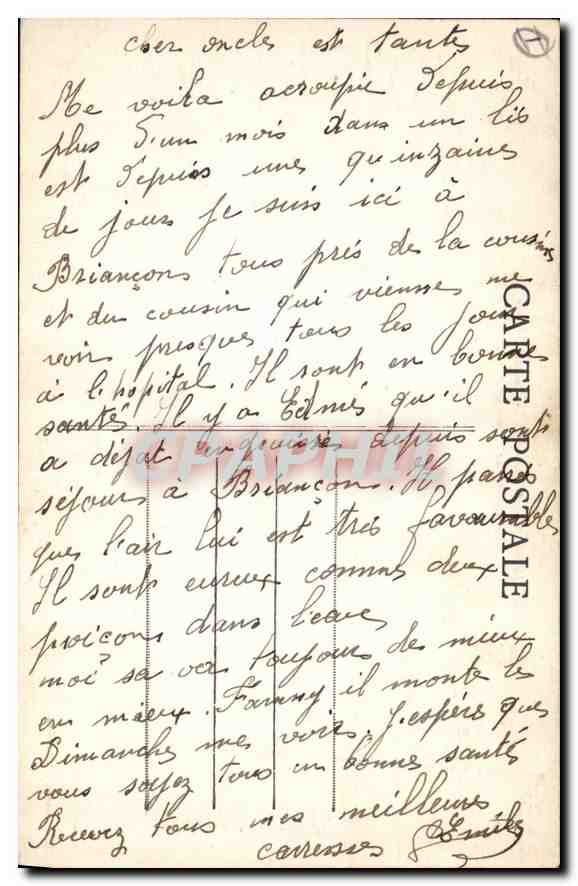 cher oncles est tantes
Me voila acroupie depuis
plus d'un mois dans un lis
est depuis unes quinzaines
de jours je suis ici à
Briançons tous prés de la cousines
et du cousin qui viennes me
voir presques tous les jours
à l'hopital. Il sont en bonnes
santés. Il y a Edmés qu'il
a déjat engraissés depuis sont
séjours à Briançons. Il parais
ques l'air lui est trés favourables
Il sont eureux commes deux
poiçons dans l'eaux
moi sa va toujours de mieux
en mieux. Fanny il monte les
Dimanches mes voirs. J'espére ques
vous soyez tous en bonnes santés
Recevez tous mes meilleures
carresses Emiles
CARTE POSTALE
CPAPHIL
1